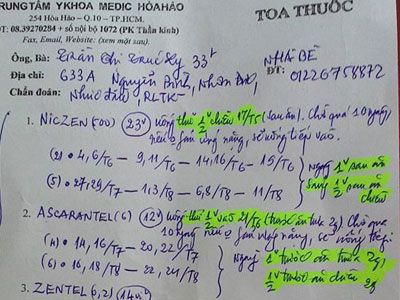 TRUNG TÂM Y KHOA MEDIC HÒA HẢO
254 Hòa Hảo – Q.10 – TP.HCM.
ĐT: 08.39270284 + số nội bộ 1072 (PK Thần Kinh)
Fax, Email, Website: (xem mặt sau).
TOA THUỐC
Ông, Bà: Trần Thị 33t NHÀ BÈ
Địa chỉ: 633A Nguyễn Bình, Nhơn Đức, ĐT: 01226758872
Chẩn đoán: Nhức đầu, RLTK
1. NICZEN (500) (23v) uống thứ 1/2v chiều 17/T5 (sau ăn). Chờ quá 10 ngày
nếu o dị ứng nặng, sẽ uống tiếp vào.
(2) • 4,6/T6 – 9,11/T6 – 14,16/T6 – 19/T6
(5) • 27,29/T7 – 1,3/T8 – 6,8/T8 – 11/T8
ngày 1v sau ăn sáng 1/2v sau ăn chiều
2. ASCARANTEL (6) (12v) uống thử 1/2v vào 21/T6 (trước ăn trưa 2g) Chờ qua
10 ngày nếu o dị ứng nặng, sẽ uống tiếp
(4) • 14,16/T7 – 20,22/T7
(6) • 16,18/T8 – 22,24/T8
Ngày 1v trước ăn trưa 2g,
1v trước ăn chiều 2g
3. ZENTEL (0,2) (14v)